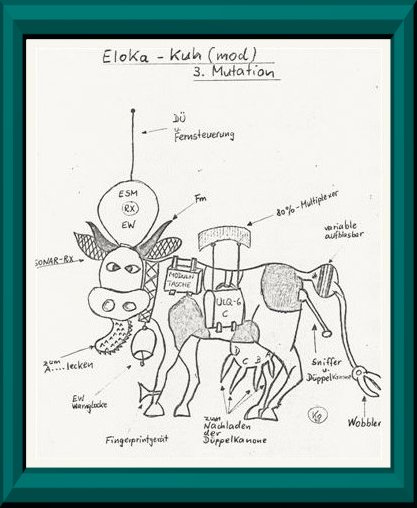 EloKa - Kuh (mod)
3. Mutation
DÜ
u
Fernsteuerung
ESM
RX
EW
Fm
80%-Multiplexer
variable
aufblasbar
SONAR-RX
MODULN
TASCHE
ULQ-6
C
zum
A....lecken
D
C
B
A
Sniffer
u.
Düppelkanone
EW
Warnglocke
Wobbler
Fingerprintgerät
zum
Nachladen
der
Düppelkanone